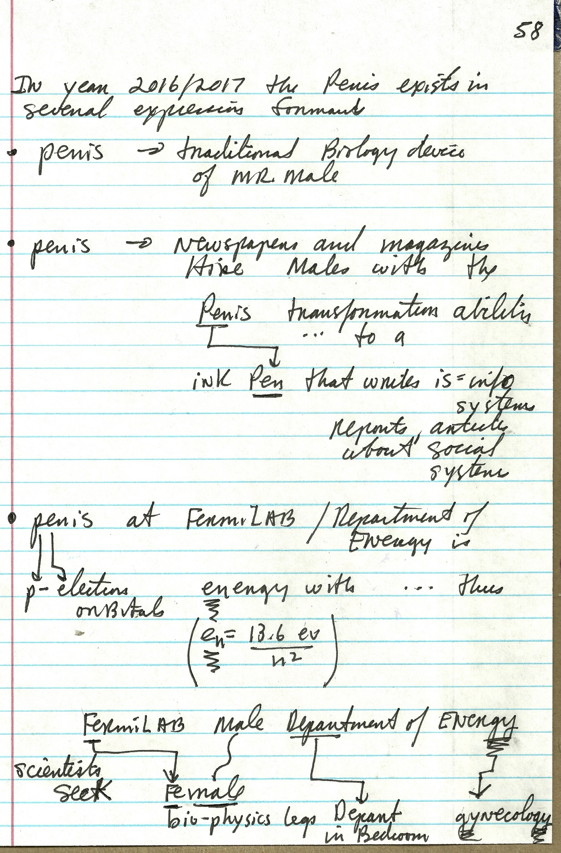 58
In year 2016/2017 the Penis exists in
several expression formants
• penis → traditional Biology device
of MR. Male
• penis → Newspapers and magazines
Hire Males with the
Penis transformation abilities
... to a
ink Pen that writes is = info
systems
reports, articles
about social
system
• penis at FermiLAB / Department of
ENergy is
p-electrons
orbitals
energy with ... thus
(en = 13.6 ev / n²)
FermiLAB male Department of ENergy
scientists
seek Female
bio-physics legs Depart gynecology
in Bedroom